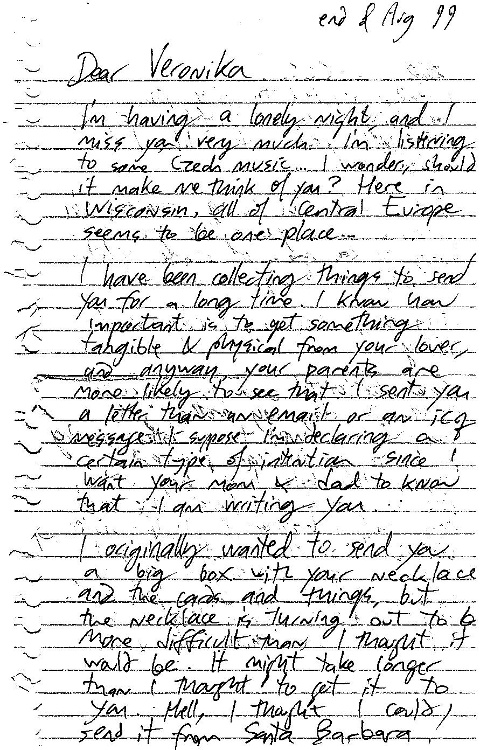 end of Aug 99
Dear Veronika
I'm having a lonely night, and I
miss you very much. I'm listening
to some Czech music... I wonder, should
it make me think of you? Here in
Wisconsin, all of Central Europe
seems to be one place...
I have been collecting things to send
you for a long time. I know how
important is to get something
tangible & physical from your lover,
and anyway, your parents are
more likely to see that I sent you
a letter than an email or an icq
message. I suppose I'm declaring a
certain type of intention since I
want your mom & dad to know
that I am writing you.
I originally wanted to send you
a big box with your necklace
and the cards and things, but
the necklace is turning out to b
more difficult than I thought it
would be. It might take longer
than I thought to get it to
you. Hell, I thought I could
send it from Santa Barbara.